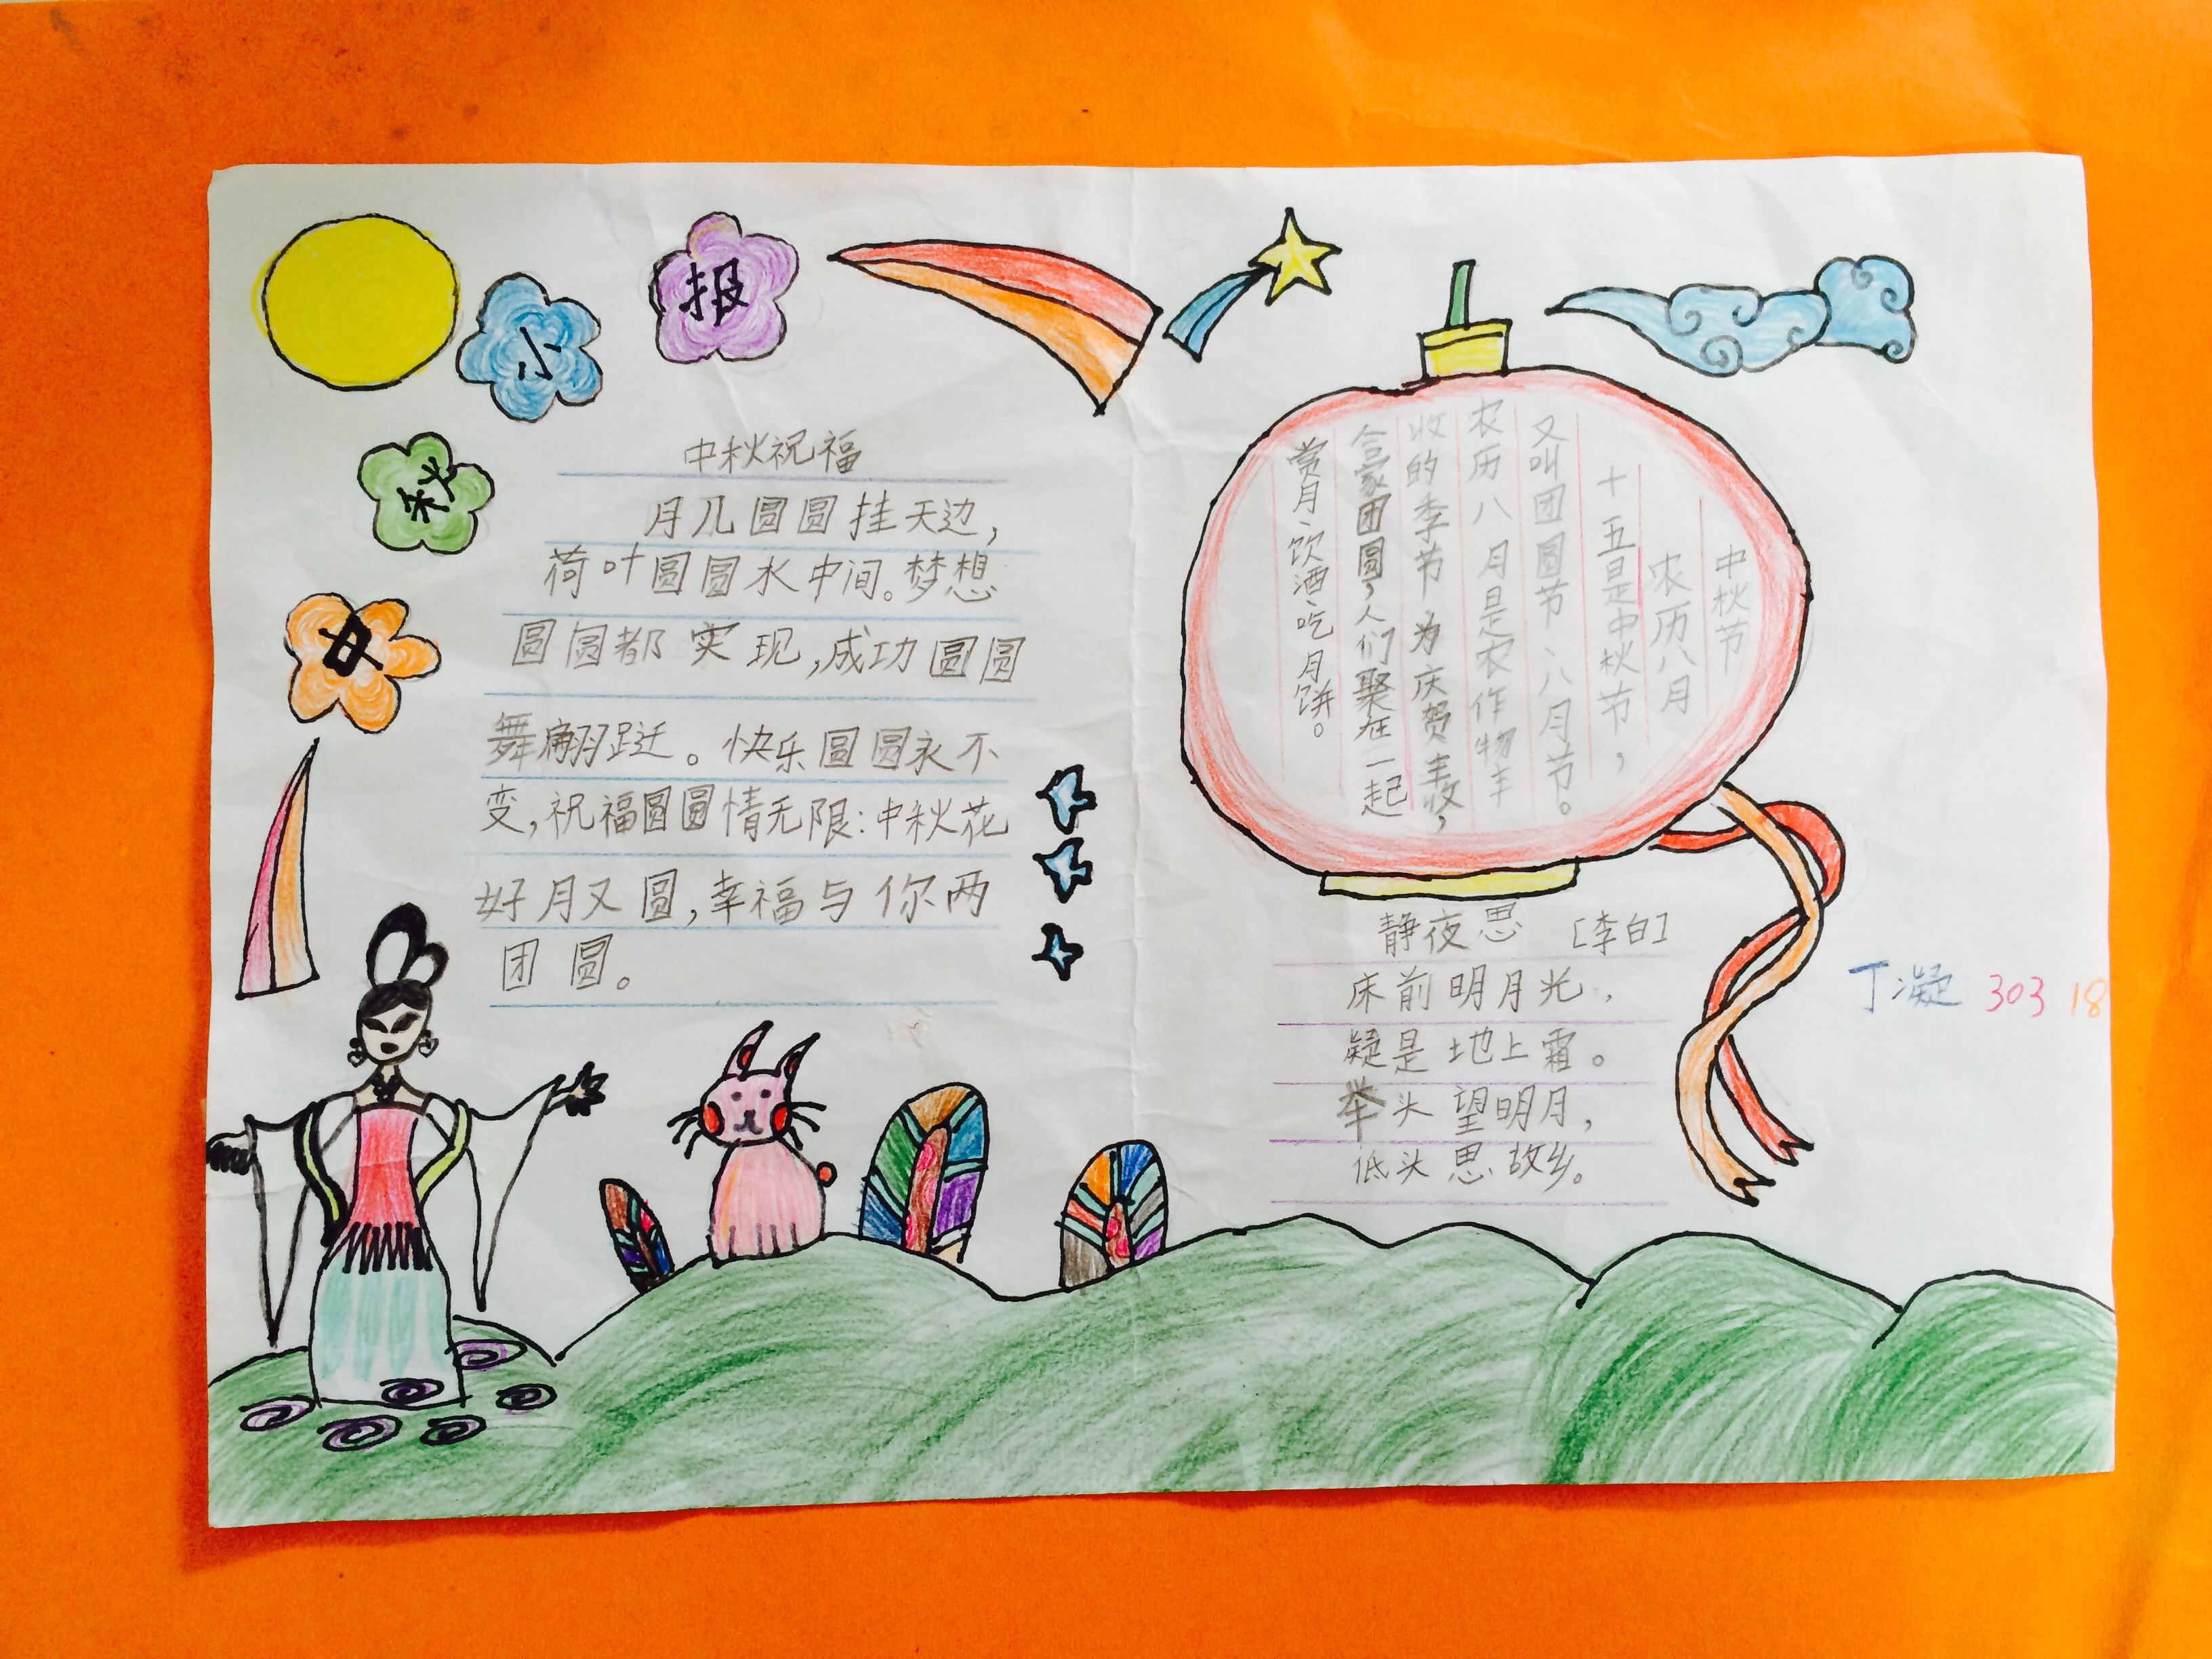 中
秋
小
报
中秋祝福
月儿圆圆挂天边，
荷叶圆圆水中间。梦想
圆圆都实现，成功圆圆
舞翩跹。快乐圆圆永不
变，祝福圆圆情无限：中秋花
好月又圆，幸福与你两
团圆。
中秋节
农历八月
十五是中秋节，
又叫团圆节、八月节。
农历八月是农作物丰
收的季节为庆贺丰收，
合家团圆，人们聚在一起
赏月、饮酒、吃月饼。
静夜思 [李白]
床前明月光，
疑是地上霜。
举头望明月，
低头思故乡。
丁凝 303 18